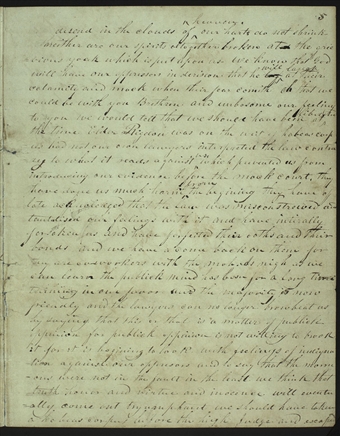 5
heaven
around in the clouds of our harts do not shrink
neither are our spirits altogether broken at the grie
vious yoak which is put upon us We know that God
will have our oppressors in derision that he will laf at their
calamity and mock when their fear comith oh that we
could be with you Brethren and unbosome our feelings
to you we would tell that we should have been
the time Elder Rigdon was on the writ of habeus corp
us had not our own lawyers interpreted the law contra
ry to what it reads against us which prevented us from
introducing our evidence before the mock court, they
have done us much harm from the begining they have of
late acknoledged that the law was misconstrewed and
tantalised our feelings with it and have intirally
forsaken us and have forfeited their oaths and their
bonds and we have a come back on them for
they are co-workers with the mob as nigh as we
can learn the publick mind has been for a long time
turning in our favor and the majority is now
friendly and the lawyers can no longer browbeat us
by saying that this or that is a matter of publick
oppinion for publick oppinion is not willing to brook
it for it is begining to look with feelings of indigna
tion against our oppresors and to say that the morm
ons were not in the fault in the least we think that
truth honor and virtue and inocence will eventu
ally come out tryumphant we should have taken
habeus corpus before the high Judge and escaped